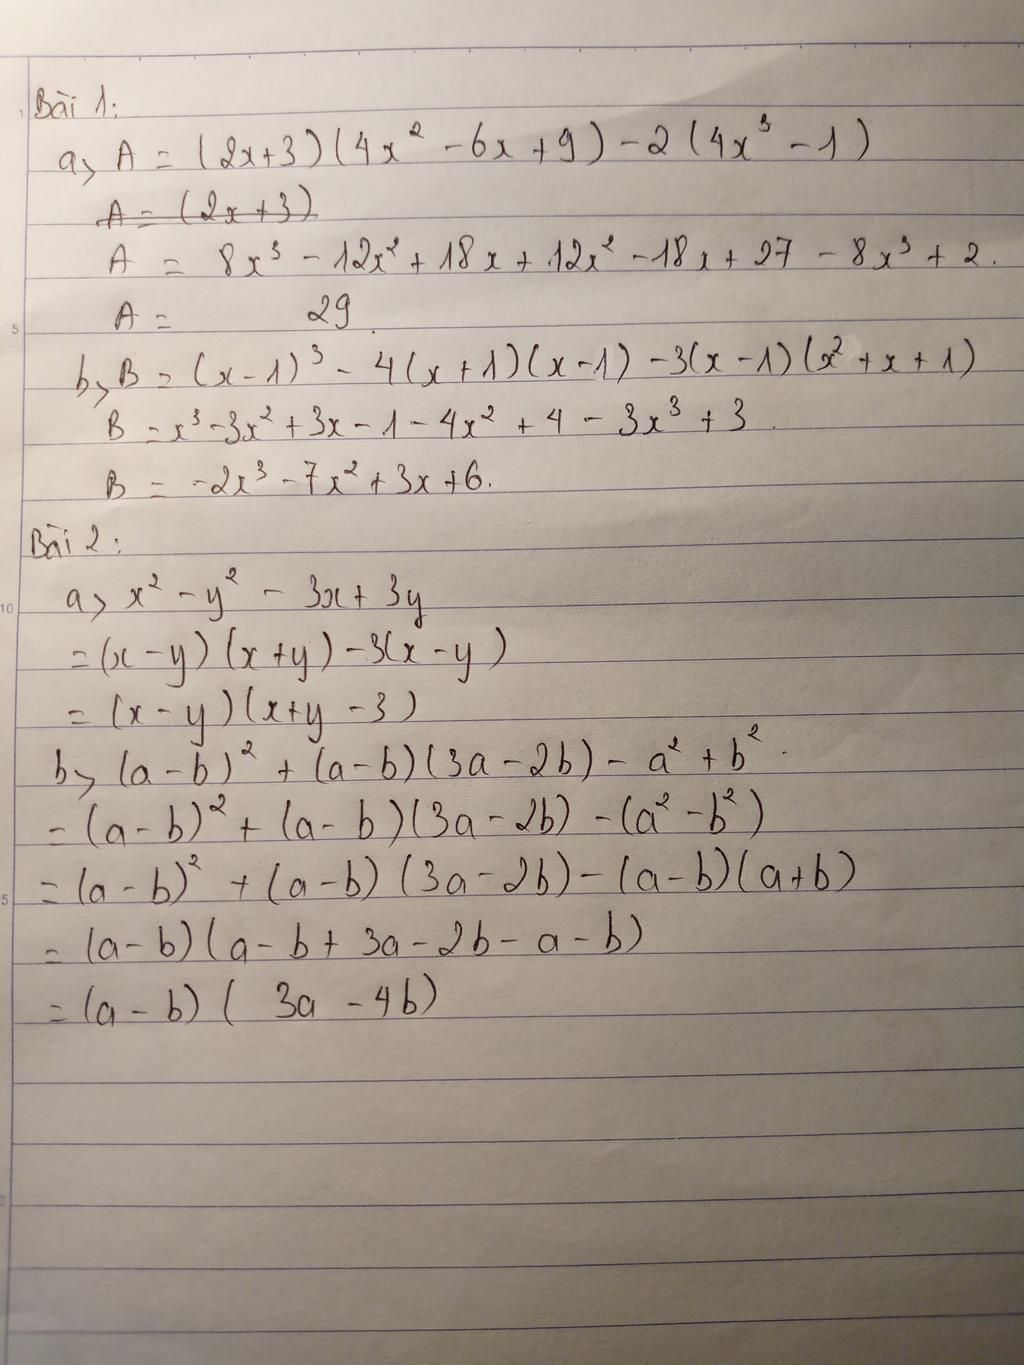 Bài 1:
a, A = (2x+3)(4x² - 6x + 9) - 2(4x³ - 1)
A = (2x+3)
A = 8x³ - 12x² + 18x + 12x² - 18x + 27 - 8x³ + 2.
A = 29.
b, B = (x-1)³ - 4(x+1)(x-1) - 3(x-1)(x² + x + 1)
B = x³ - 3x² + 3x - 1 - 4x² + 4 - 3x³ + 3.
B = -2x³ - 7x² + 3x + 6.
Bài 2:
a, x² - y² - 3x + 3y
= (x - y)(x+y) - 3(x - y)
= (x - y)(x+y - 3)
b, (a - b)² + (a - b)(3a - 2b) - a² + b².
= (a - b)² + (a - b)(3a - 2b) - (a² - b²)
= (a - b)² + (a - b)(3a - 2b) - (a - b)(a+b)
= (a - b)(a - b + 3a - 2b - a - b)
= (a - b)(3a - 4b)